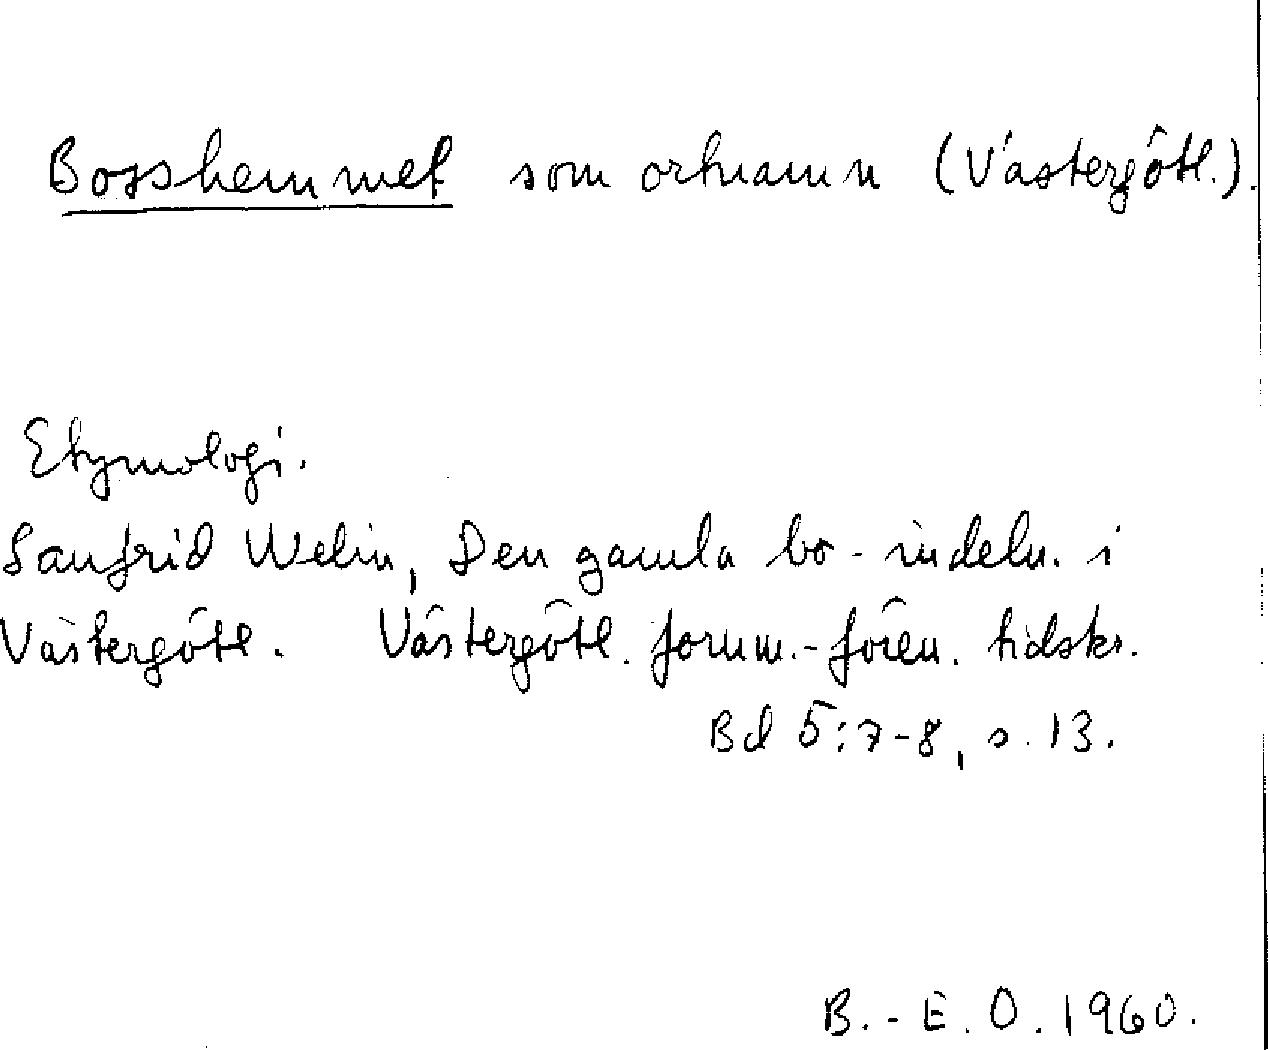 Bosshemmet som ortnamn (Västergötl.).
Etymologi.
Sanfrid Welin, Den gamla bo-indeln. i
Västergötl. Västergötl. fornm.-fören. tidskr.
Bd 5:7-8, s. 13.
B.-E. O. 1960.